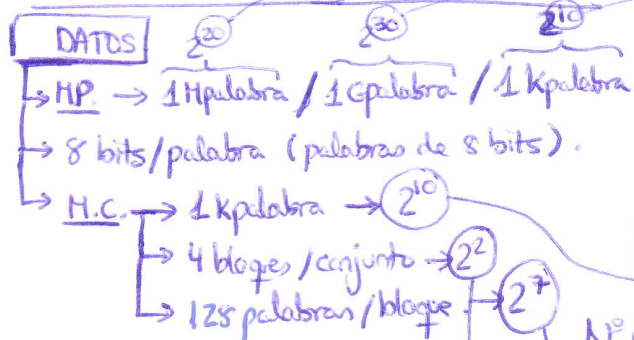 DATOS 2^20 2^30 2^10
→ MP. → 1 Mpalabra / 1 Gpalabra / 1 Kpalabra
→ 8 bits/palabra (palabras de 8 bits).
→ M.C. → 1 kpalabra → 2^10
→ 4 bloques/conjunto → 2^2
→ 128 palabras/bloque → 2^7
Nº